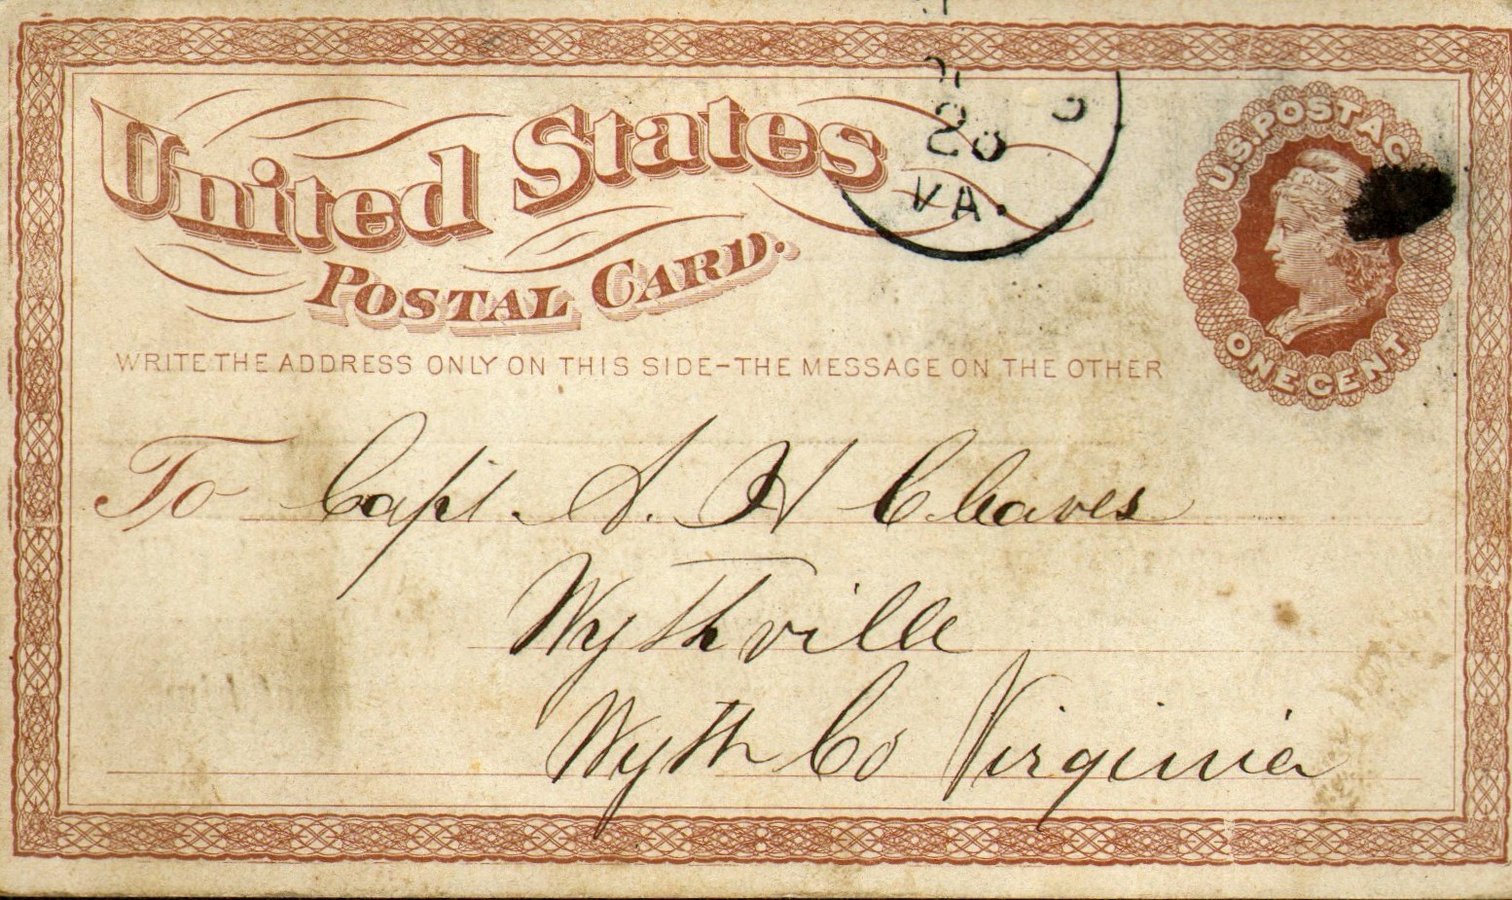 United States
POSTAL CARD.
WRITE THE ADDRESS ONLY ON THIS SIDE-THE MESSAGE ON THE OTHER
VA.
U.S. POSTAGE
ONE CENT
To Capt. S. H Cleaves
Wythville
Wyth Co Virginia